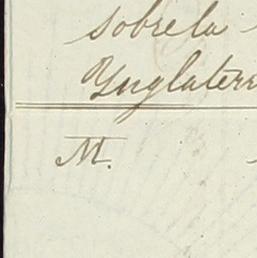 sobre la
Ynglaterr
M.